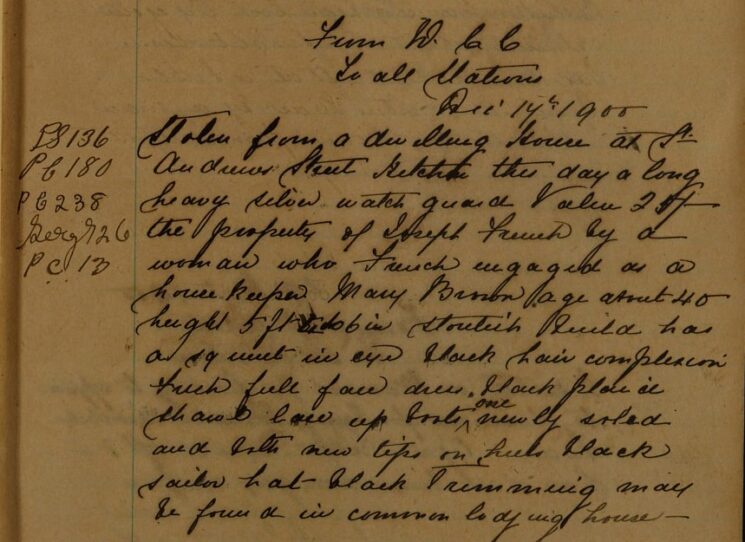 From W. C C
To all Stations
Dec 17th 1900
PS 136
PC 180
PC 238
Sergt 26
PC 13
Stolen from a dwelling House at St
Andrews Street Hitchin this day a long
heavy silver watch guard Value 25/-
the property of Joseph French by a
woman who French engaged as a
house keeper Mary Brown age about 40
height 5 ft 6 in stoutish build has
a squint in eye black hair complexion
fresh full face dress, black plaid
shawl lace up boots one newly soled
and both new tips on heels black
sailor hat black Trimming may
be found in common lodging house —